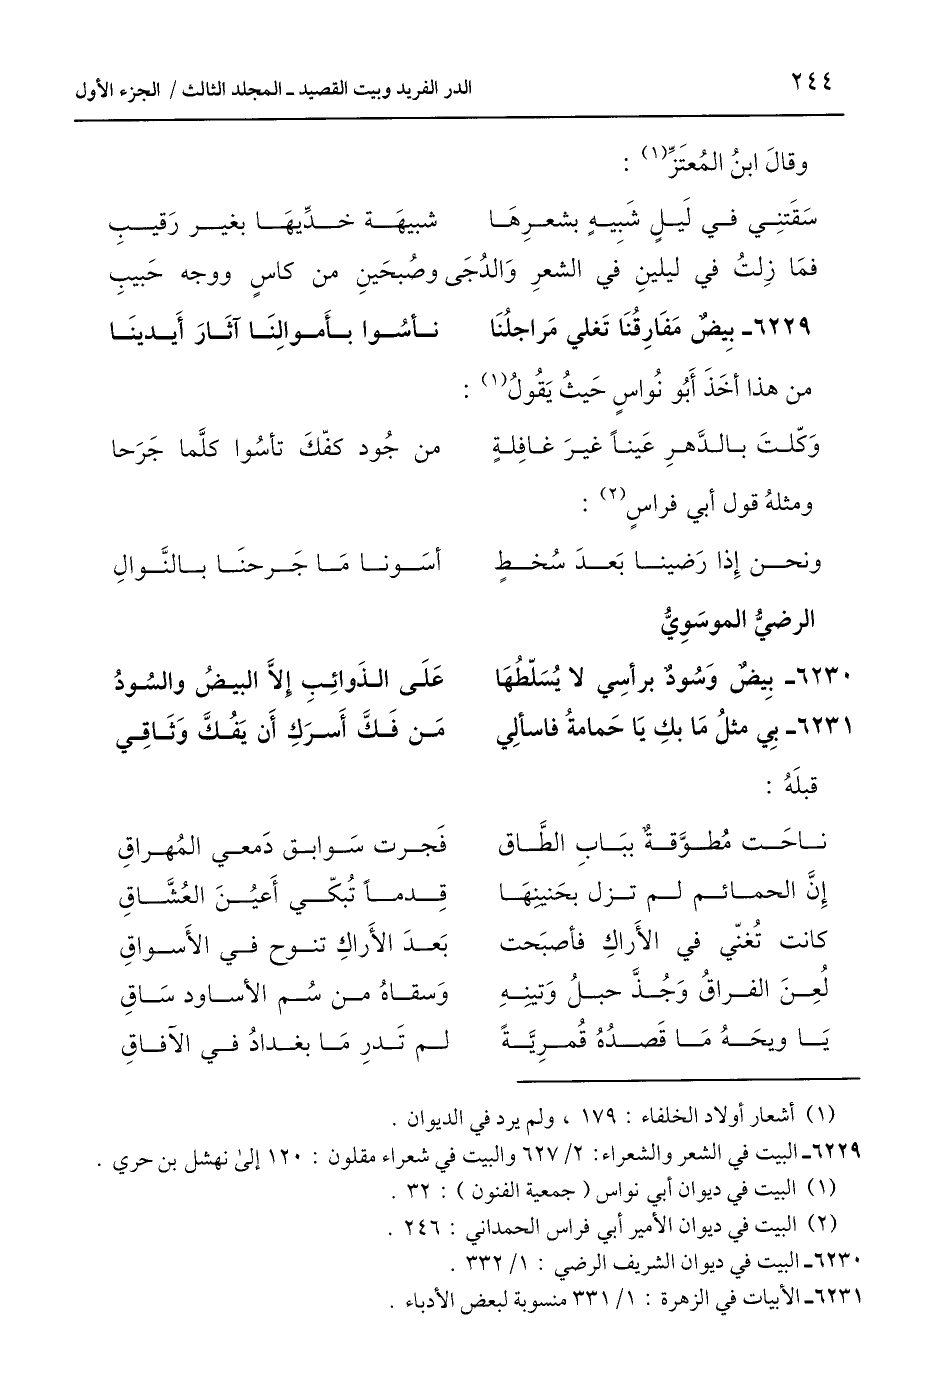 ٢٤٤ الدر الفريد وبيت القصيد ــ المجلد الثالث / الجزء الأول
وقالَ ابنُ المُعتَزِّ(١) :
سَقَتنِي فـي لَيـلٍ شَبيـهٍ بشعـرِهَـا شبيهَـة خـدِّيهَـا بغيـر رَقيـبِ
فمَا زِلتُ في ليلين في الشعرِ وَالدُجَى وصُبحَين من كاسٍ ووجه حَبيبِ
٦٢٢٩ـ بِيضٌ مَفَارِقُنَا تَغلي مَراجلُنَا نـأسُـوا بـأمـوالِنَـا آثـارَ أيـدينَـا
من هذا أخَذَ أبُو نُواسٍ حَيثُ يَقُولُ(١) :
وَكّلـتَ بـالـدَّهـرِ عَينـاً غيـرَ غـافلـةٍ من جُود كفّكَ تأسُوا كلَّما جَرَحا
ومثلهُ قول أبي فراسٍ(٢) :
ونحـن إِذا رَضينـا بَعـدَ سُخـطٍ أسَـونـا مَـا جَـرحنَـا بـالنَّـوالِ
الرضيُّ الموسَوِيُّ
٦٢٣٠ـ بِيضٌ وَسُودٌ برأسِي لا يُسَلّطُهَا عَلَى الـذَوائِـبِ إلاَّ البيـضُ والسُـودُ
٦٢٣١ـ بِي مثلُ مَا بكِ يَا حَمامةُ فاسألِي مَـن فَـكَّ أسـرَكِ أن يَفُـكَّ وَثَـاقِـي
قبلَهُ :
نـاحَـت مُطـوَّقـةٌ ببَـابِ الطَّـاق فَجـرت سَـوابـق دَمعـي المُهـراقِ
إنَّ الحمـائـم لـم تـزل بحَنينِهَـا قِـدمـاً تُبكّـي أعيُـنَ العُشَّـاقِ
كانت تُغنّي في الأراكِ فأصبَحت بَعـدَ الأراكِ تنـوح فـي الأسـواقِ
لُعِـنَ الفـراقُ وَجُـذَّ حبـلُ وَتينِـهِ وَسقـاهُ مـن سُـم الأسـاود سَـاقِ
يَـا ويحَـهُ مَـا قَصـدُهُ قُمـريَّـةً لـم تَـدرِ مَـا بغـدادُ فـي الآفـاقِ
(١) أشعار أولاد الخلفاء : ١٧٩ ، ولم يرد في الديوان .
٦٢٢٩ـ البيت في الشعر والشعراء : ٢/ ٦٢٧ والبيت في شعراء مقلون : ١٢٠ إلىٰ نهشل بن حري .
(١) البيت في ديوان أبي نواس ( جمعية الفنون ) : ٣٢ .
(٢) البيت في ديوان الأمير أبي فراس الحمداني : ٢٤٦ .
٦٢٣٠ـ البيت في ديوان الشريف الرضي : ١/ ٣٣٢ .
٦٢٣١ـ الأبيات في الزهرة : ١/ ٣٣١ منسوبة لبعض الأدباء .